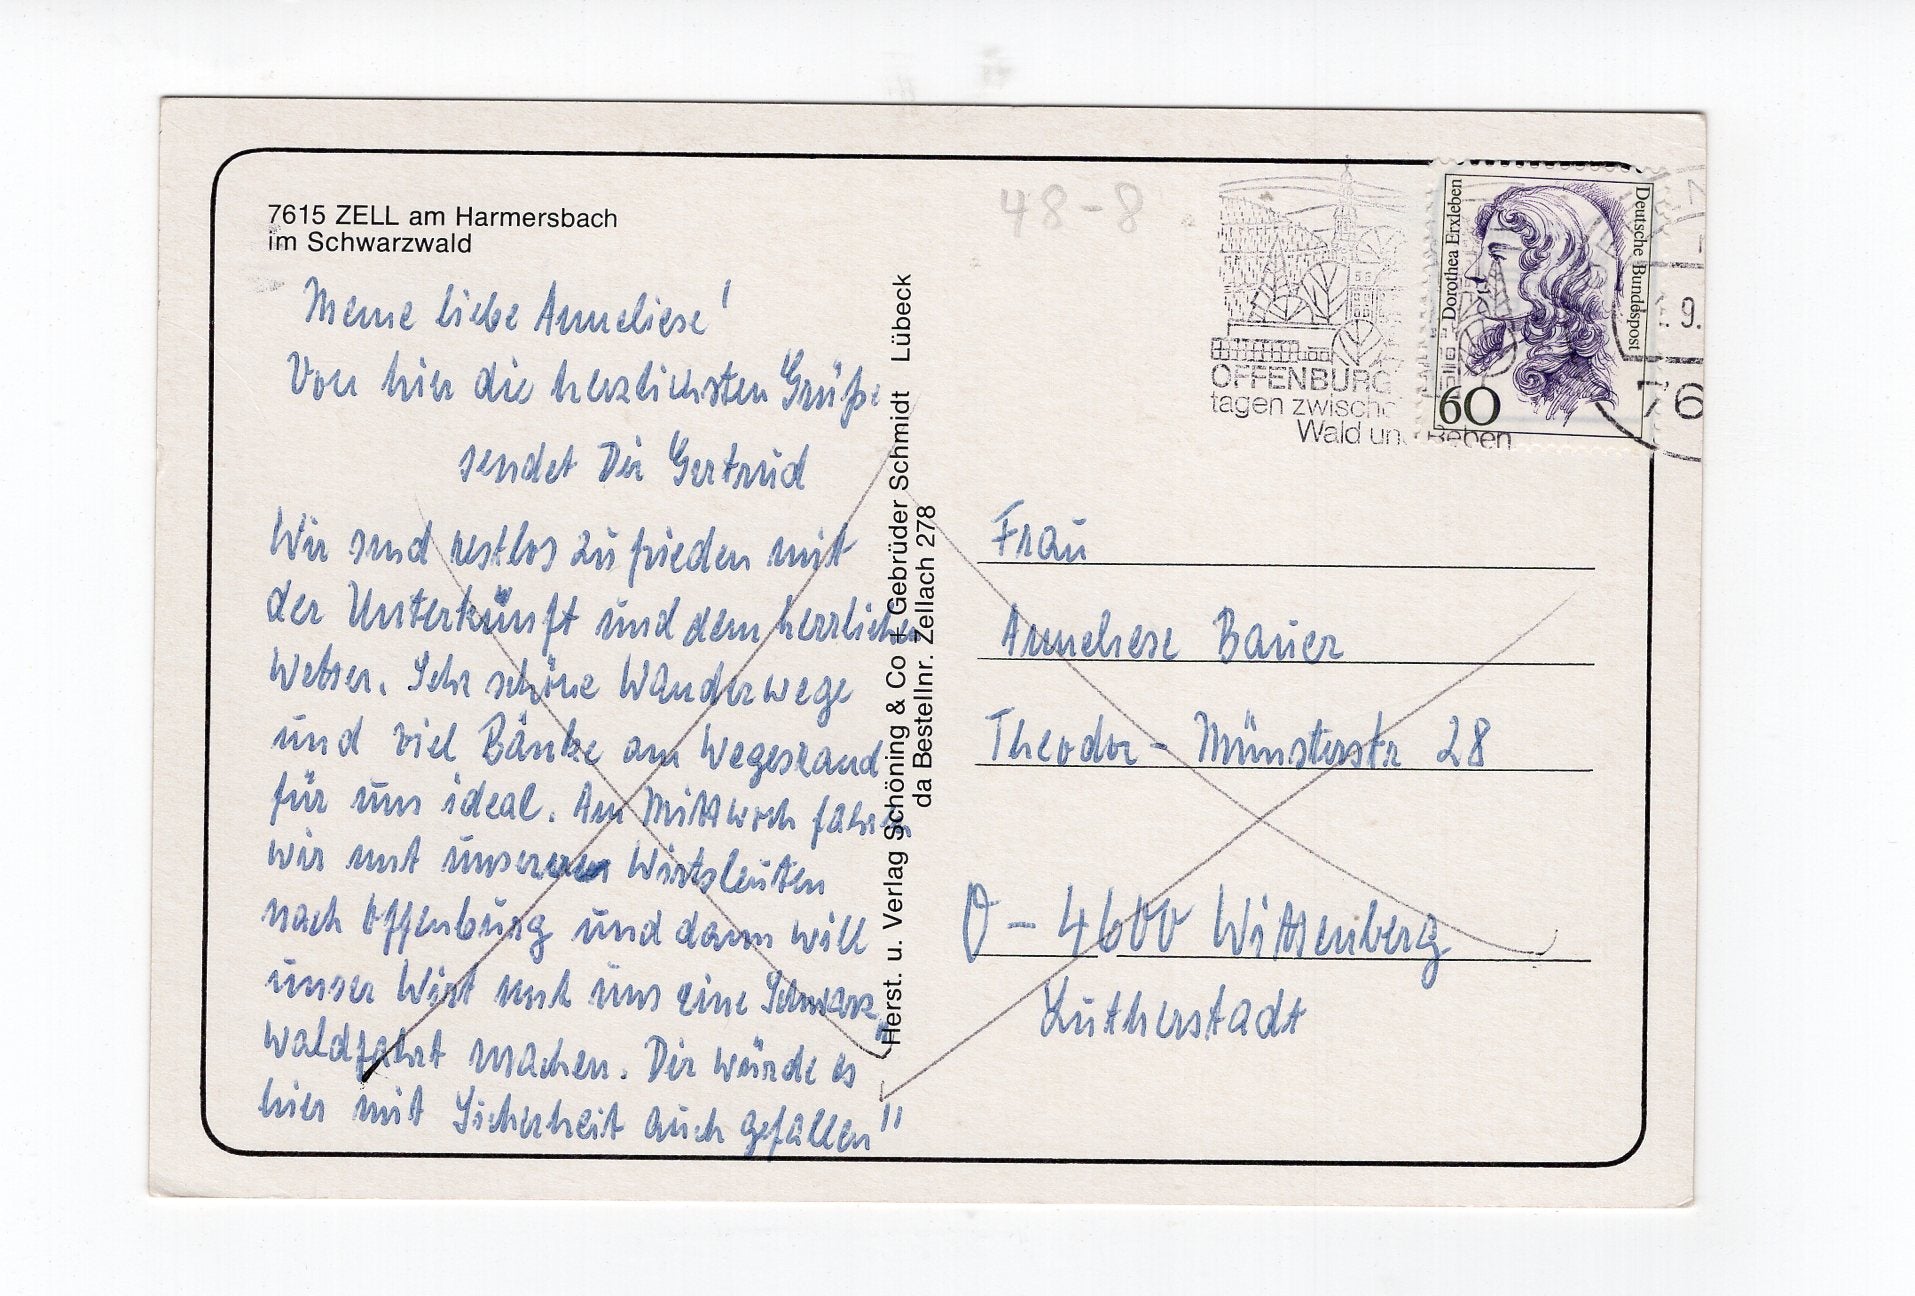 7615 ZELL am Harmersbach
im Schwarzwald
Meine liebe Anneliese!
Von hier die herzlichsten Grüße
sendet Dir Gertrud
Wir sind restlos zufrieden mit
der Unterkünft und dem herrlichen
Wetter. Sehr schöne Wanderwege
und viel Bänke am Wegesrand
für uns ideal. Am Mittwoch fahren
wir mit unseren Wirtsleuten
nach Offenburg und dann will
unser Wirt mit uns eine Schwarz-
waldfahrt machen. Dir würde es
hier mit Sicherheit auch gefallen"
Herst. u. Verlag Schöning & Co + Gebrüder Schmidt Lübeck
da Bestellnr. Zellach 278
48-8
OFFENBURG
tagen zwische
Wald un Reben
Dorothea Erxleben
Deutsche Bundespost
60
9.
76
Frau
Anneliese Bauer
Theodor-Münsterstr 28
O-4600 Wittenberg
Lutherstadt